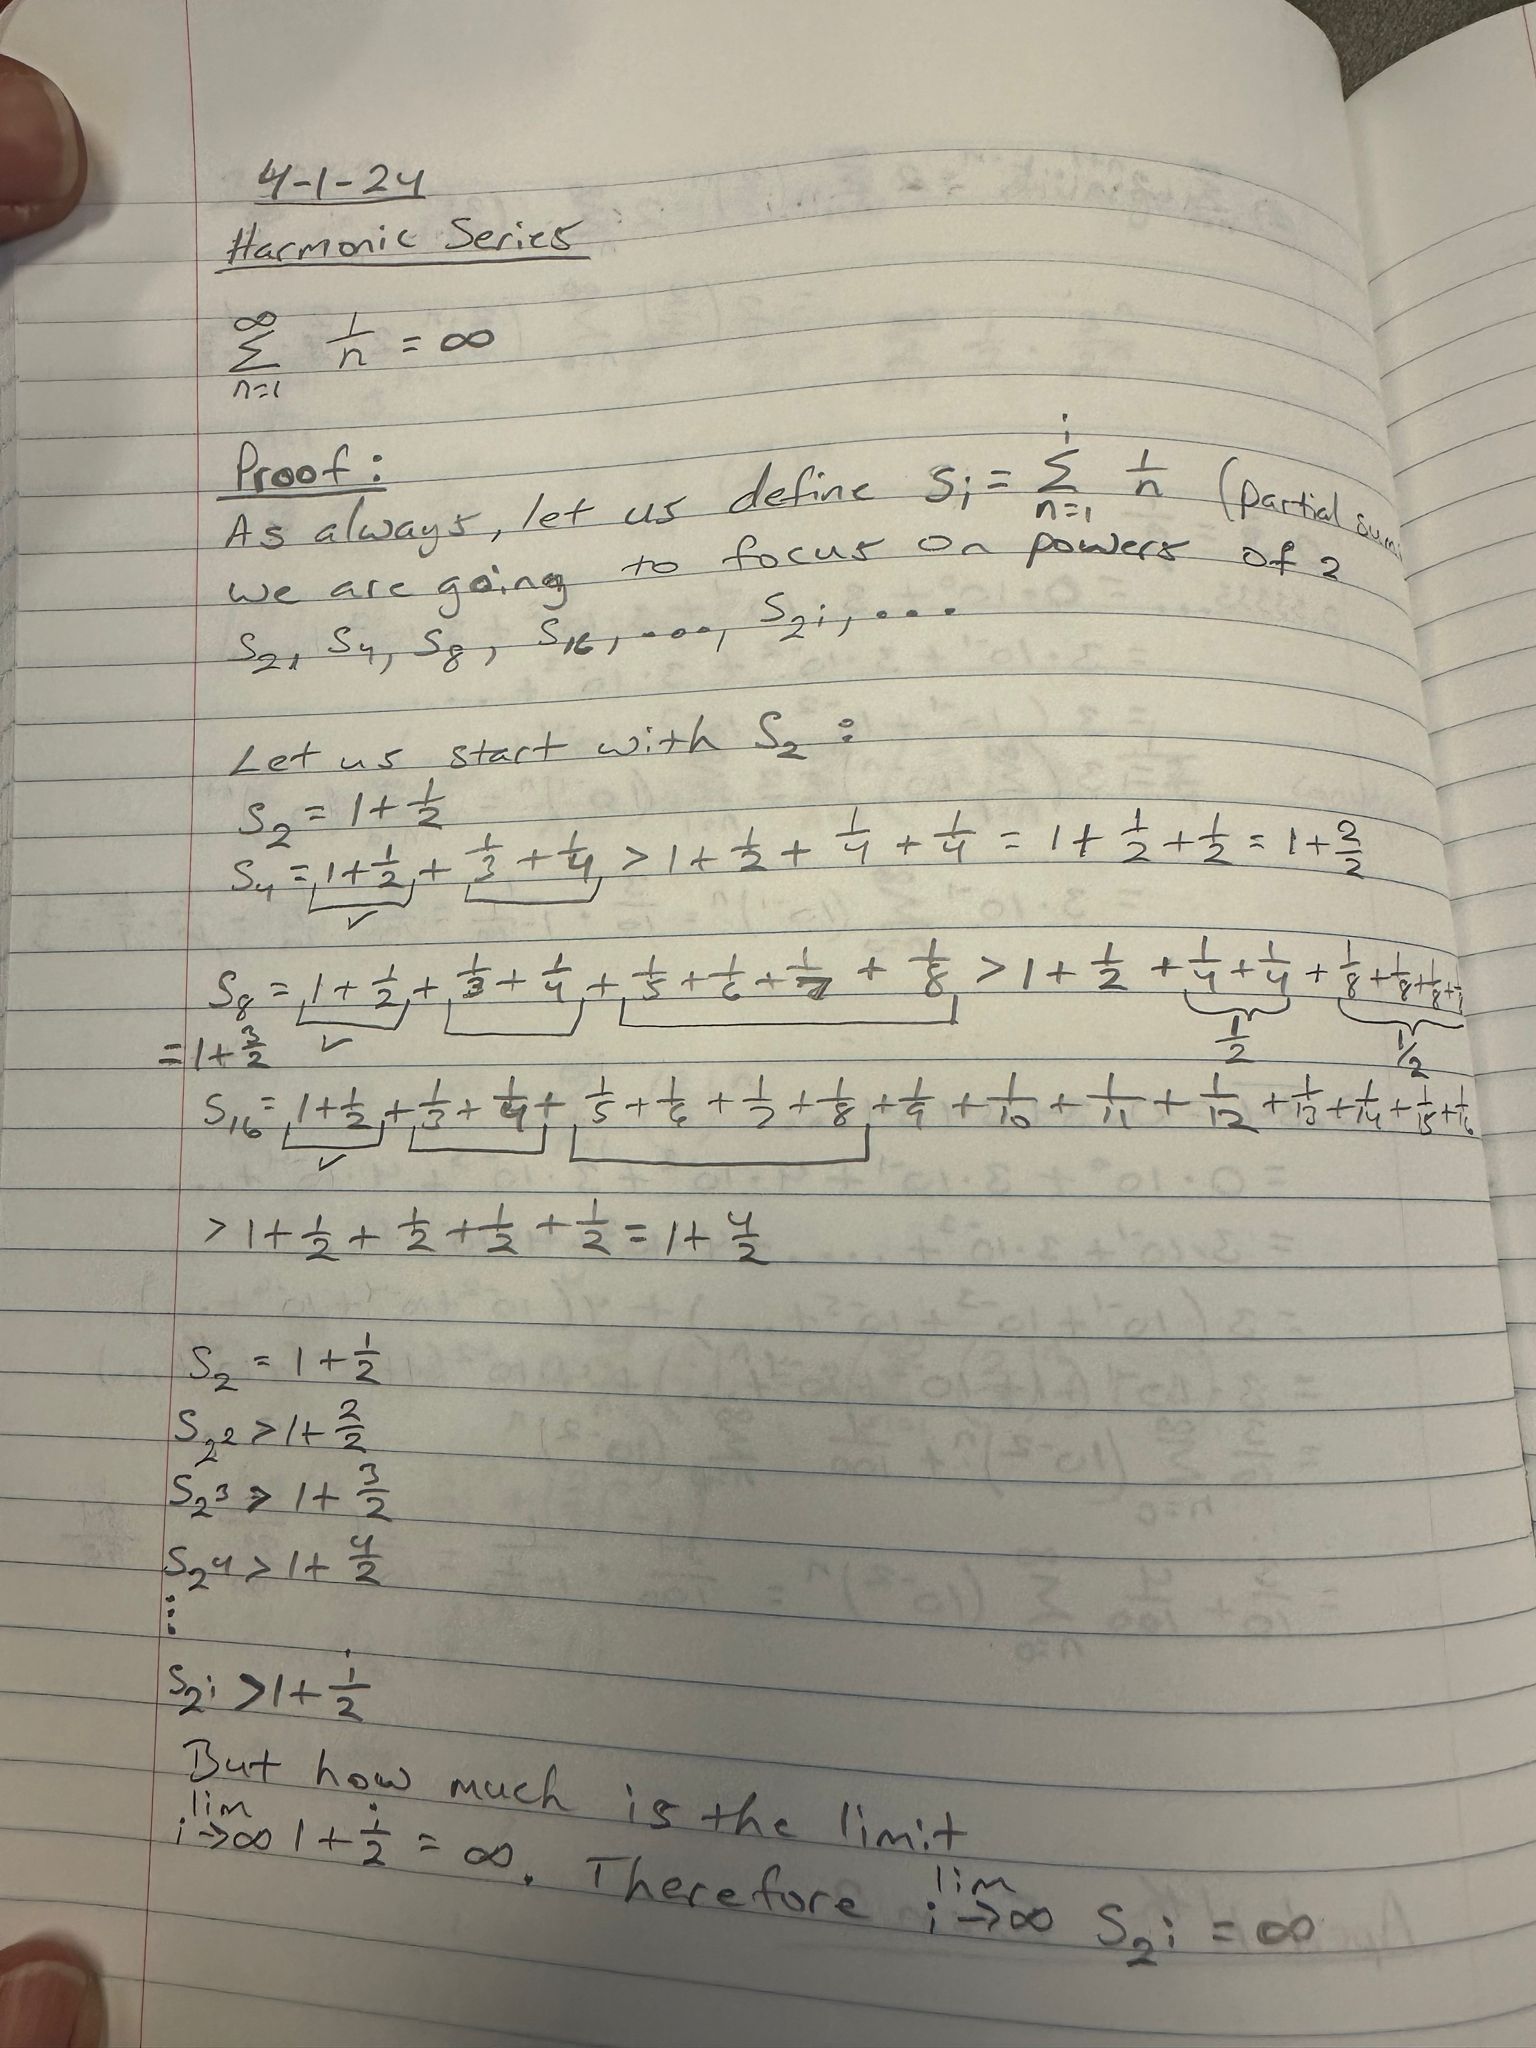 4-1-24
Harmonic Series
∞
Σ 1/n = ∞
n=1
Proof:
As always, let us define S_i = Σ_{n=1}^{i} 1/n (partial sum
we are going to focus on powers of 2
S_2, S_4, S_8, S_16, ..., S_{2^i}, ...
Let us start with S_2 :
S_2 = 1 + 1/2
S_4 = 1 + 1/2 + 1/3 + 1/4 > 1 + 1/2 + 1/4 + 1/4 = 1 + 1/2 + 1/2 = 1 + 2/2
✓
S_8 = 1 + 1/2 + 1/3 + 1/4 + 1/5 + 1/6 + 1/7 + 1/8 > 1 + 1/2 + 1/4 + 1/4 + 1/8 + 1/8 + 1/8 +
✓ 1/2 1/2
= 1 + 3/2
S_16 = 1 + 1/2 + 1/3 + 1/4 + 1/5 + 1/6 + 1/7 + 1/8 + 1/9 + 1/10 + 1/11 + 1/12 + 1/13 + 1/14 + 1/15 + 1/16
✓
> 1 + 1/2 + 1/2 + 1/2 + 1/2 = 1 + 4/2
S_2 = 1 + 1/2
S_{2^2} > 1 + 2/2
S_{2^3} > 1 + 3/2
S_{2^4} > 1 + 4/2
⋮
S_{2^i} > 1 + i/2
But how much is the limit
lim_{i→∞} 1 + i/2 = ∞. Therefore lim_{i→∞} S_{2^i} = ∞